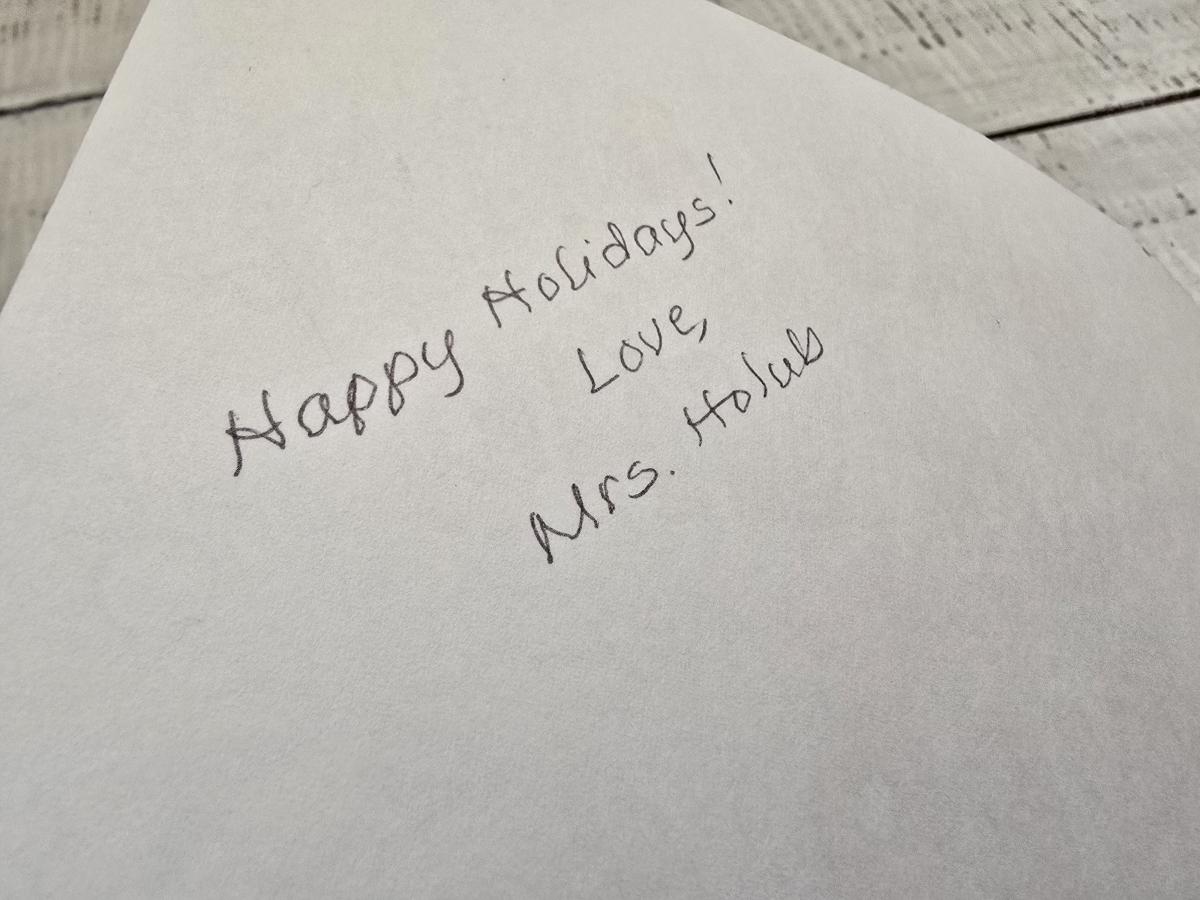 Happy Holidays!
Love,
Mrs. Holub